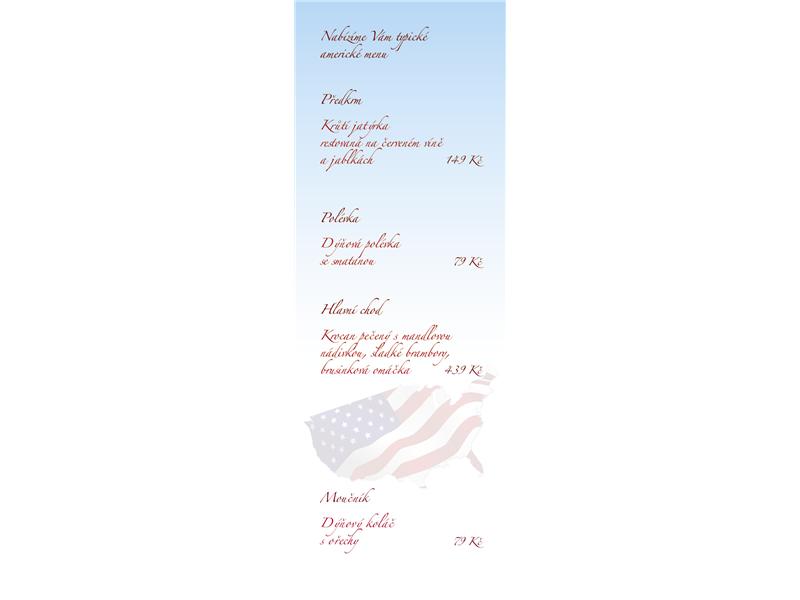 Nabízíme Vám typické
americké menu
Předkrm
Krůtí jatýrka
restovaná na červeném víně
a jablkách 149 Kč
Polévka
Dýňová polévka
se smatanou 79 Kč
Hlavní chod
Krocan pečený s mandlovou
nádivkou, sladké brambory,
brusinková omáčka 439 Kč
Moučník
Dýňový koláč
s ořechy 79 Kč